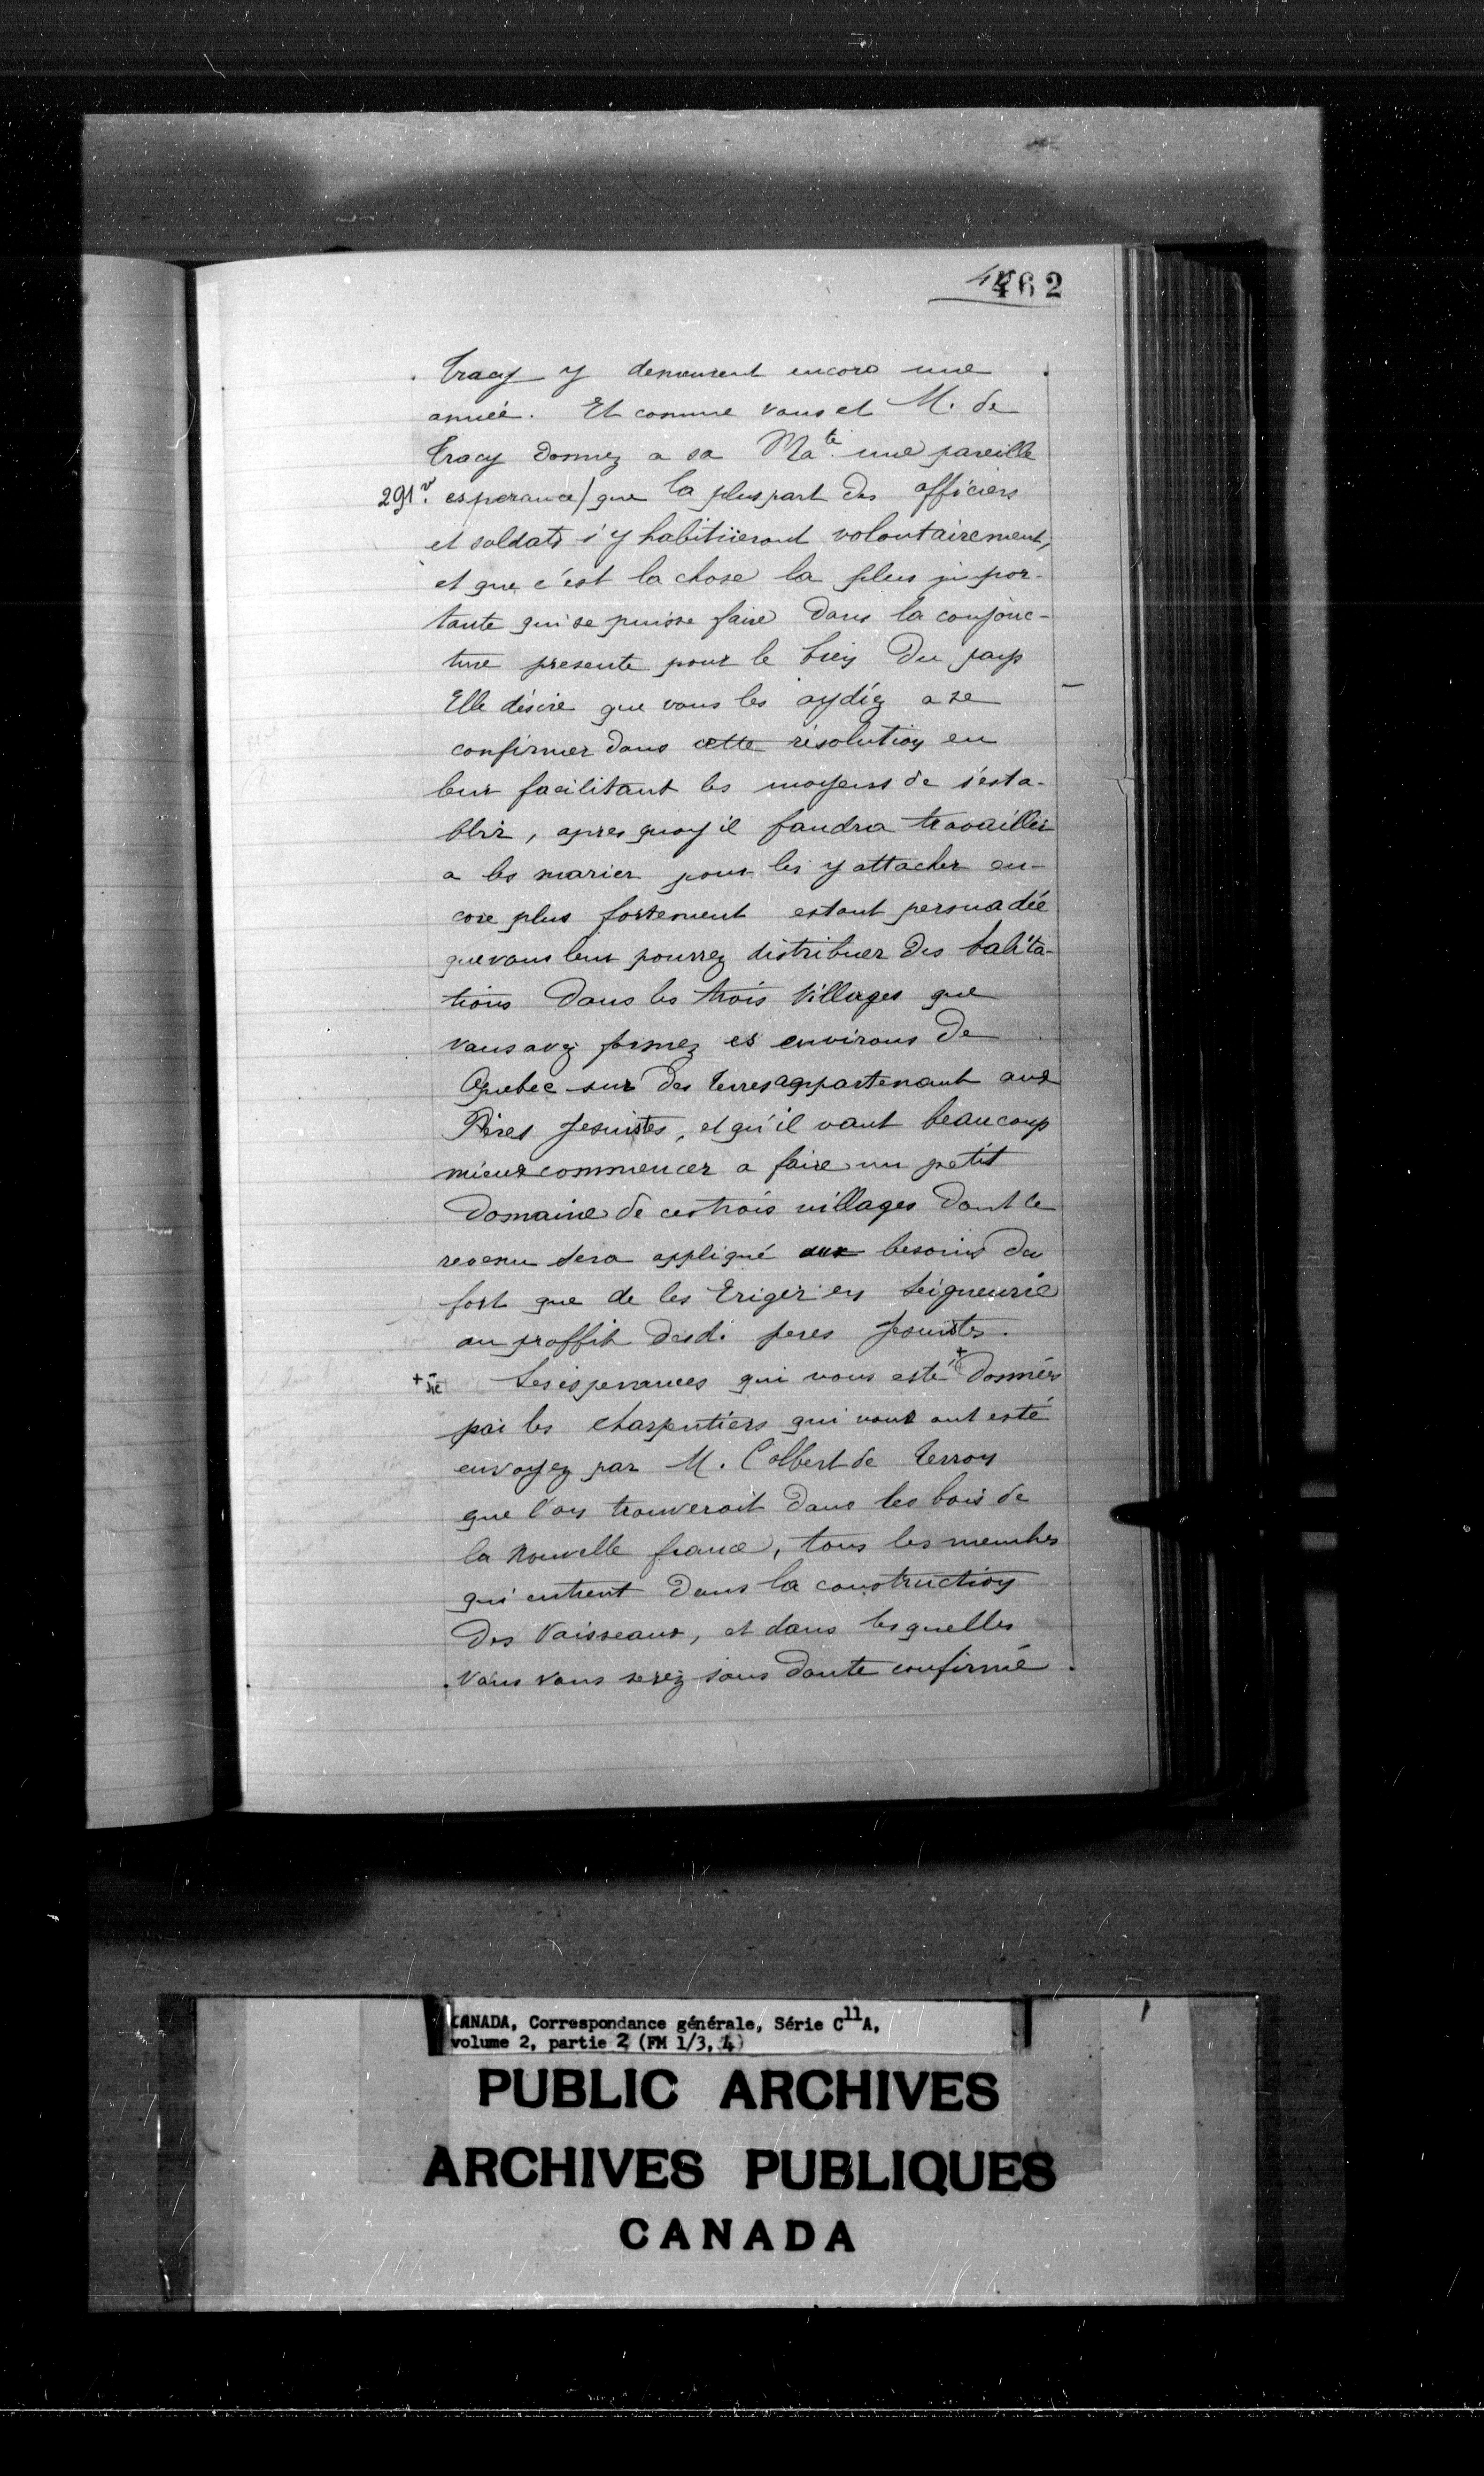 462
Tracy y demeurent encore une
année. Et comme vous et M. de
Tracy donnez a sa Ma.té une pareille
291v. esperance/ que la plus part des officiers
et soldats s'y habitüeront volontairement,
et que c'est la chose la plus impor-
tante qui se puisse faire dans la conjonc-
ture presente pour le bien du pays
Elle désire que vous les aydiéz a se
confirmer dans cette résolution en
leur facilitant les moyens de s'esta-
blir, apres quoy il faudra travailler
a les marier pour les y attacher en-
core plus fortement estant persuadée
que vous leur pourrez distribuer des habita-
tions dans les trois Villages que
vous avez formez es environs de
Quebec sur des terres appartenant aux
Pères Jesuistes, et qu'il vaut beaucoup
mieux commencer a faire un petit
Domaine de ces trois villages dont le
revenu sera appliqué aux besoins du
fort que de les Eriger en Seigneurie
au proffit desd. peres Jesuistes.
+ sic Les esperances qui vous esté + données
par les charpentiers qui vous ont esté
envoyez par M. Colbert de Terron
que l'on trouveroit dans les bois de
la Nouvelle france, tous les membres
qui entrent dans la construction
des Vaisseaux, et dans lesquelles
vous vous serez sans doute confirmé
CANADA, Correspondance générale, Série C11A,
volume 2, partie 2 (FM 1/3, 4)
PUBLIC ARCHIVES
ARCHIVES PUBLIQUES
CANADA